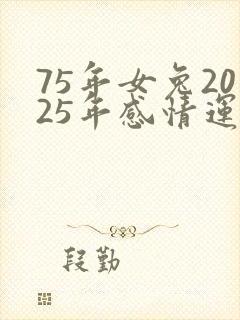 75年女兔20
25年感情运
段勤